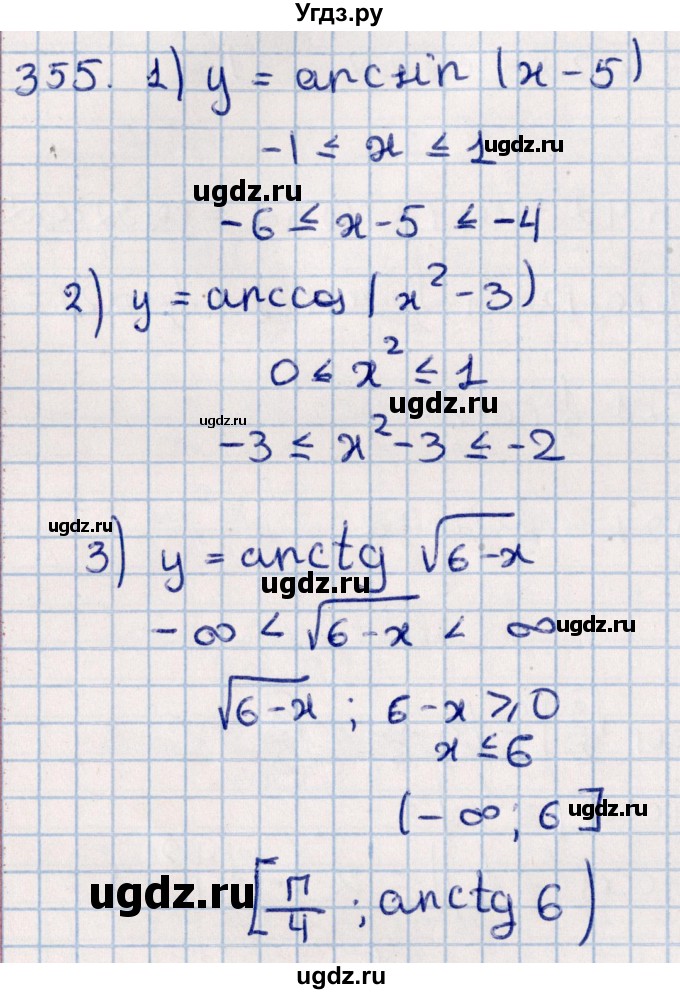 Угдз.ру
355. 1) y = arcsin (x - 5)
-1 ≤ x ≤ 1
ugdz.ru
ugdz.ru
-6 ≤ x - 5 ≤ -4
2) y = arccos (x² - 3)
0 ≤ x² ≤ 1
ugdz.ru
ugdz.ru
-3 ≤ x² - 3 ≤ -2
ugdz.ru
3) y = arctg √6-x
ugdz.ru
-∞ < √6-x < ∞
ugdz.ru
√6-x ; 6-x ≥ 0
x ≤ 6
(-∞; 6]
ugdz.ru
ugdz.ru
[π/4 ; arctg 6)
ugdz.ru